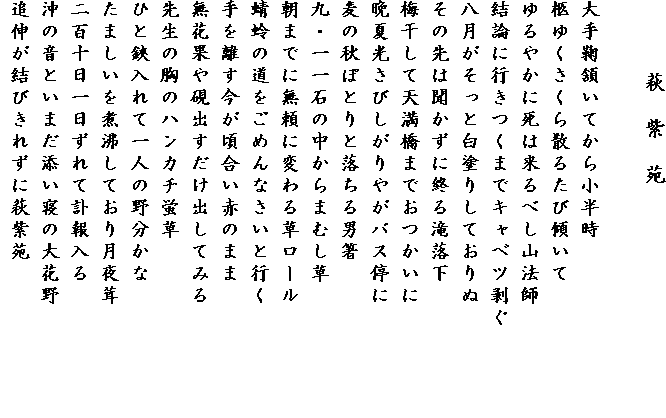 萩紫苑
大手鞠頷いてから小半時
柩ゆくさくら散るたび傾いて
ゆるやかに死は来るべし山法師
結論に行きつくまでキャベツ剥ぐ
八月がそっと白塗りしておりぬ
その先は聞かずに終る滝落下
梅干して天満橋までおつかいに
晩夏光さびしがりやがバス停に
麦の秋ぽとりと落ちる男箸
九・一一石の中からまむし草
朝までに無頼に変わる草ロール
蜻蛉の道をごめんなさいと行く
手を離す今が頃合い赤のまま
無花果や硯出すだけ出してみる
先生の胸のハンカチ蛍草
ひと鋏入れて一人の野分かな
たましいを煮沸しており月夜茸
二百十日一日ずれて訃報入る
沖の音といまだ添い寝の大花野
追伸が結びきれずに萩紫苑